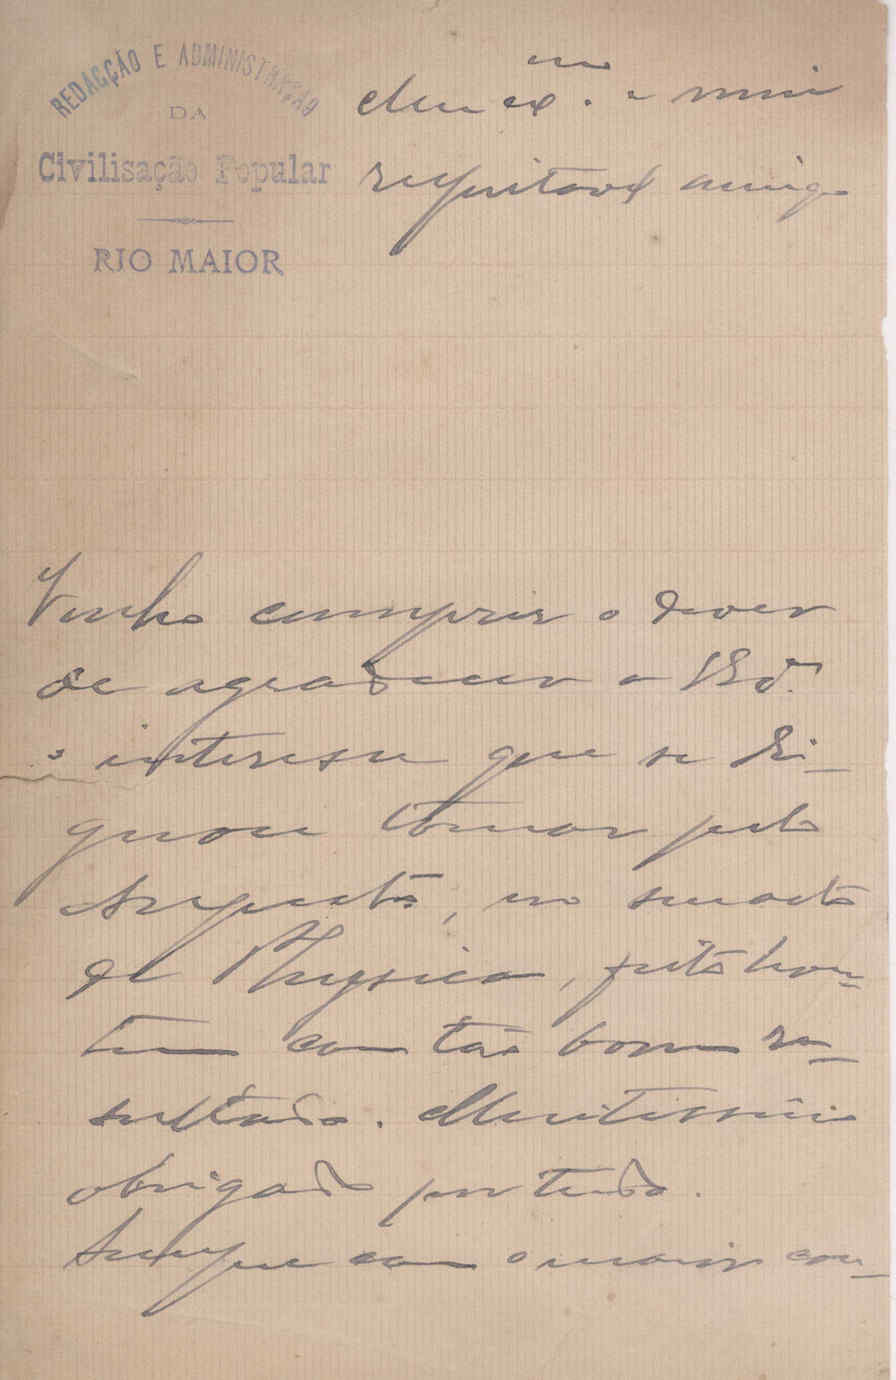 REDACÇÃO E ADMINISTRAÇÃO
DA
Civilisação Popular
RIO MAIOR
Meu ex.mo e mui
respeitavel amigo
Venho cumprir o dever
de agradecer a V. Ex.ª
o interesse que se di-
gnou tomar pelo
Augusto, no seu acto
de Physica, feito hon-
tem com tão bom re-
sultado. Muitissimo
obrigado por tudo.
Sempre com a maior con-